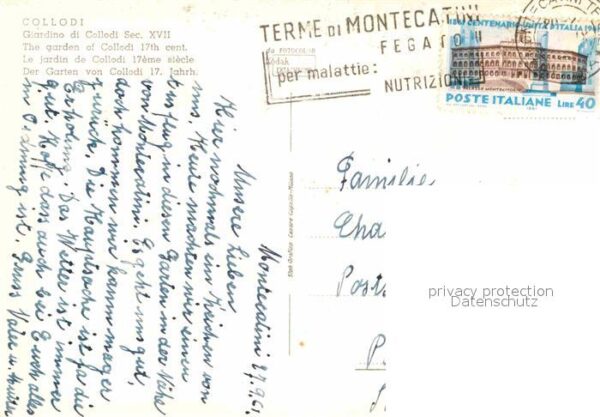 COLLODI
Giardino di Collodi Sec. XVII
The garden of Collodi 17th cent.
Le jardin de Collodi 17ème siècle
Der Garten von Collodi 17. Jahrh.
TERME DI MONTECATINI
FEGATO
per malattie:
NUTRIZIONE
da FOTOCOLOR
Kodak
1861 CENTENARIO UNITÀ D'ITALIA
POSTE ITALIANE LIRE 40
Montecatini 27.9.61.
Unsere Lieben
Hier nochmals ein Zeichen von
uns. Heute machten wir einen
Ausflug in diesen Garten in der Nähe
von Montecatini. Es geht uns gut,
doch kommen wir dann mager
zurück. Die Hauptsache ist ja die
Erholung. Das Wetter ist immer
gut. Hoffe dass auch bei Euch alles
in Ordnung ist. Gruss Vater u. Mutter
Familie
Cha
Post
P
privacy protection
Datenschutz